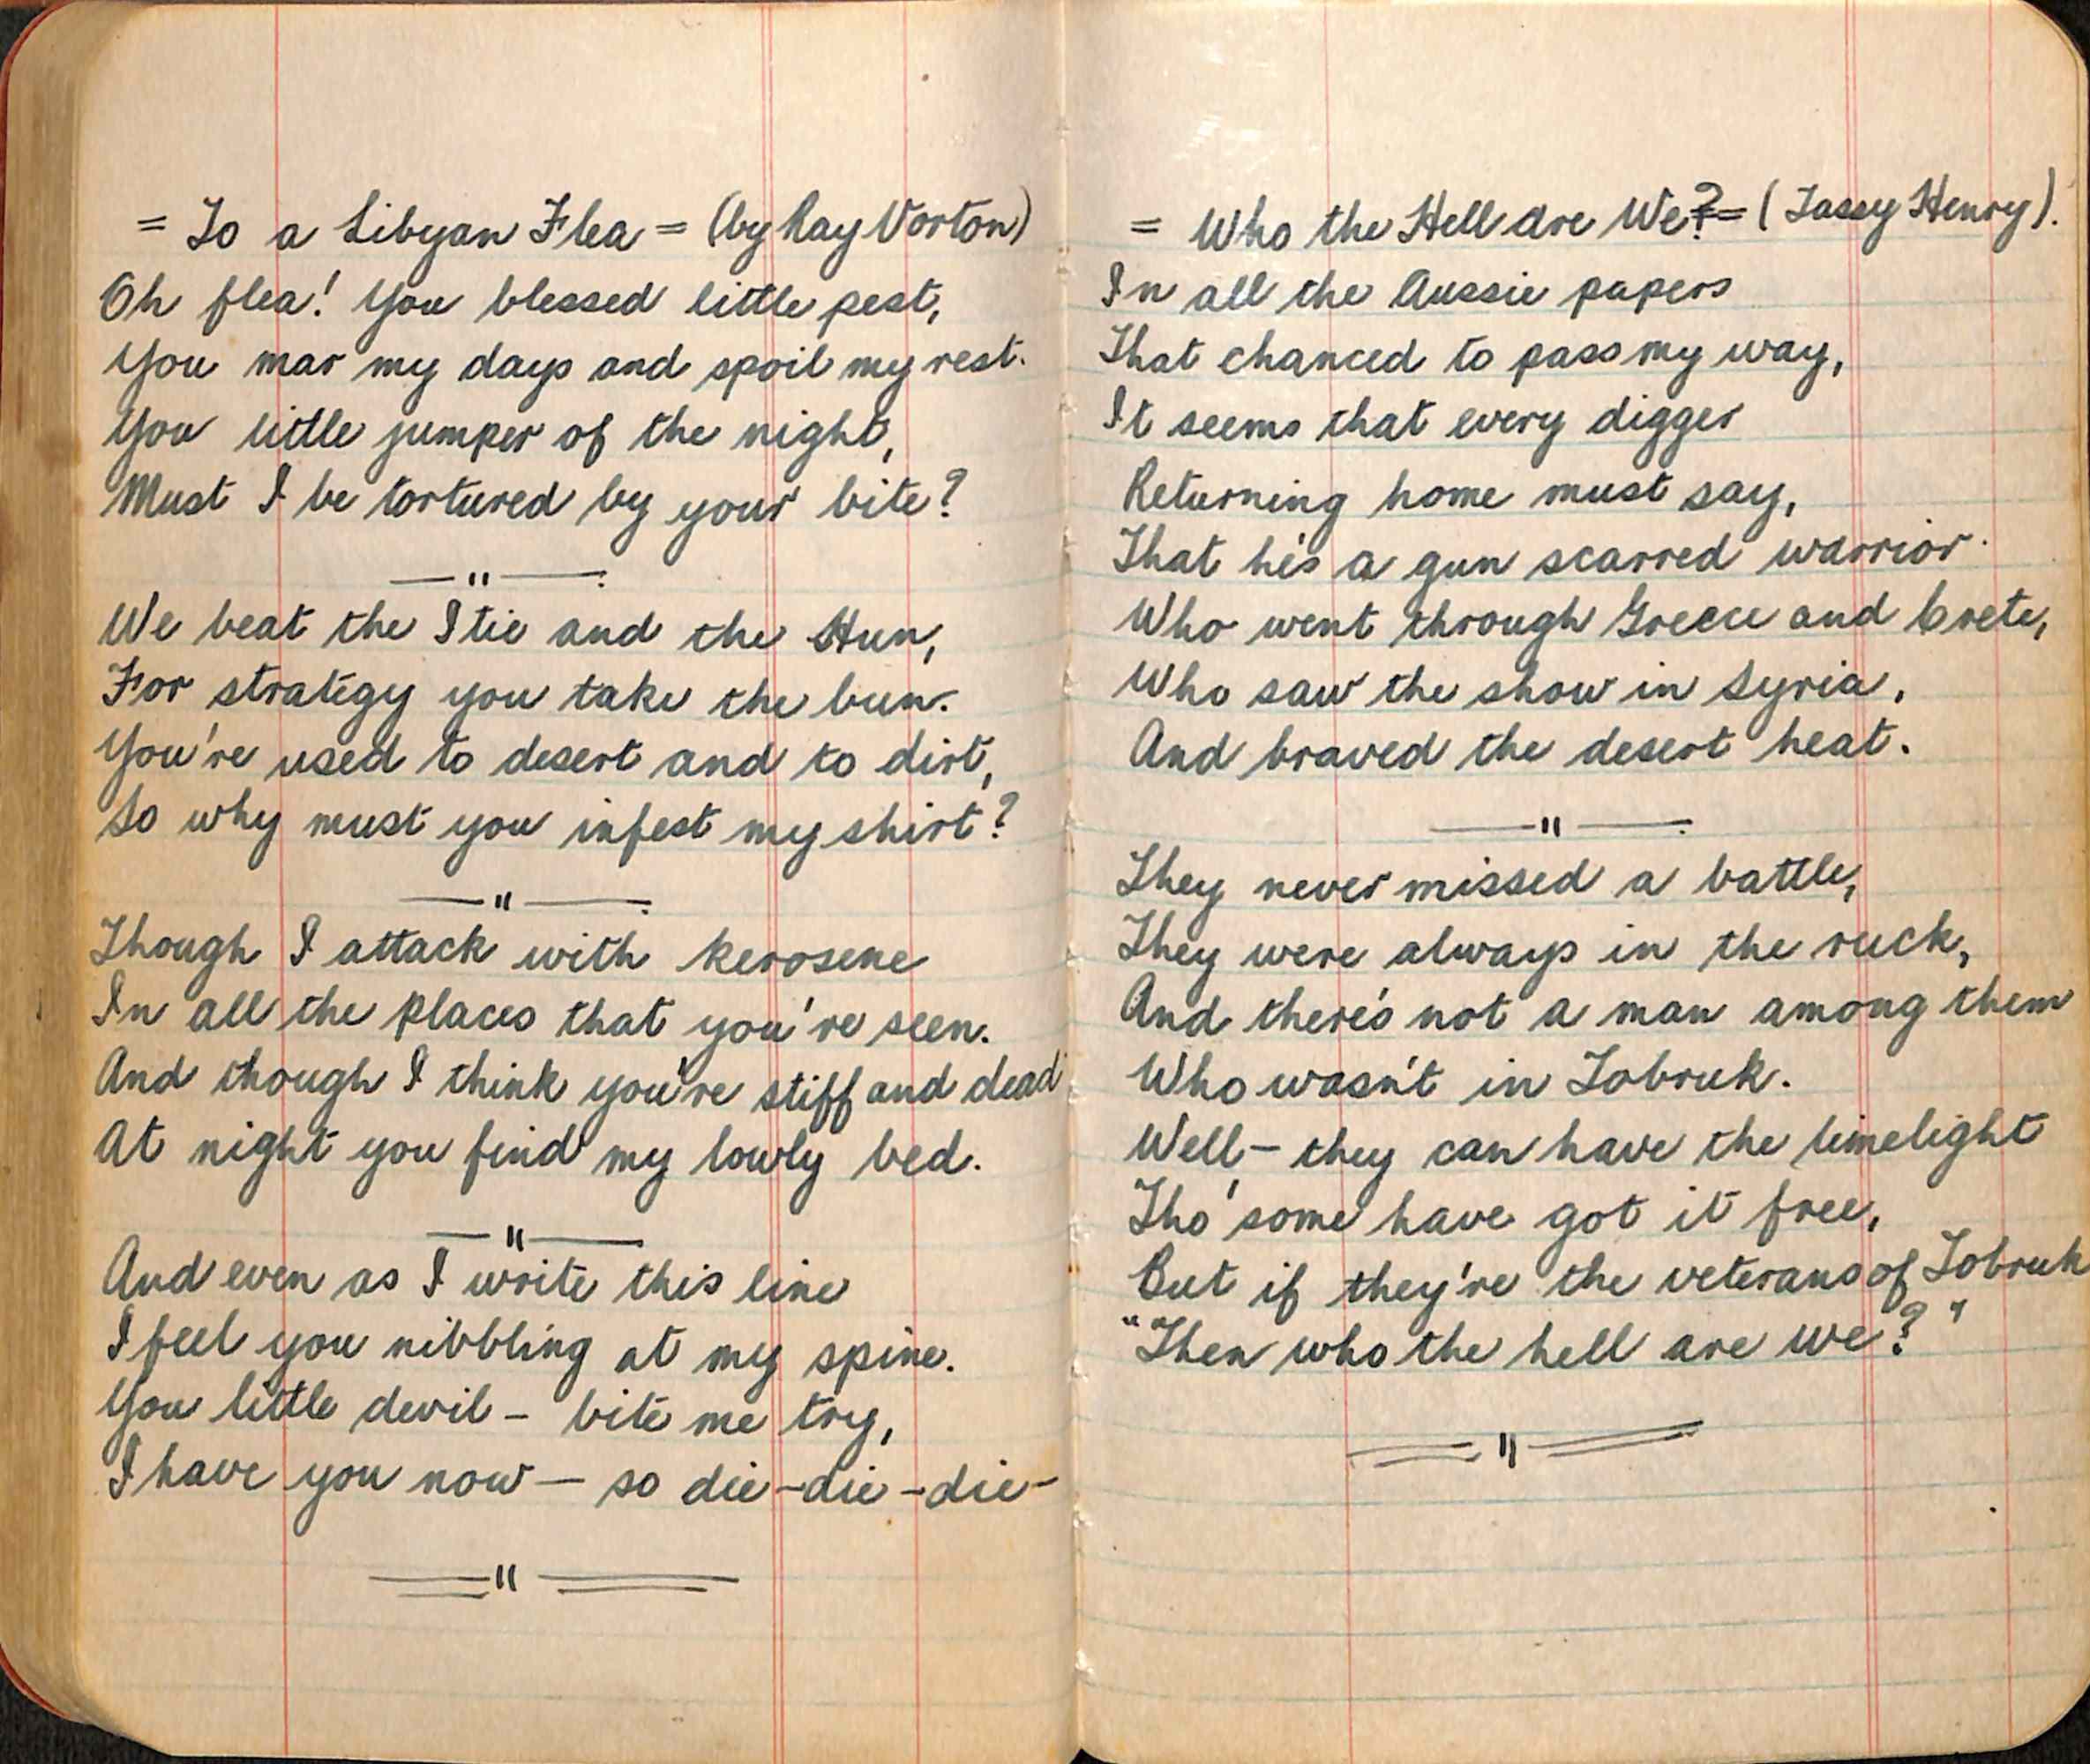 = To a Libyan Flea = (by Ray Norton)
Oh flea! You blessed little pest,
You mar my days and spoil my rest.
You little jumper of the night,
Must I be tortured by your bite?
— " —
We beat the Itie and the Hun,
For strategy you take the bun.
You're used to desert and to dirt,
So why must you infest my shirt?
— " —
Though I attack with kerosene
In all the places that you're seen.
And though I think you're stiff and dead
At night you find my lowly bed.
— " —
And even as I write this line
I feel you nibbling at my spine.
You little devil – bite me try,
I have you now — so die – die – die –
== " ==
= Who the Hell are We? = (Tassy Henry).
In all the Aussie papers
That chanced to pass my way,
It seems that every digger
Returning home must say,
That he's a gun scarred warrior.
Who went through Greece and Crete,
Who saw the show in Syria,
And braved the desert heat.
— " —
They never missed a battle,
They were always in the ruck,
And there's not a man among them
Who wasn't in Tobruk.
Well – they can have the limelight
Tho' some have got it free,
But if they're the veterans of Tobruk
"Then who the hell are we?"
== " ==